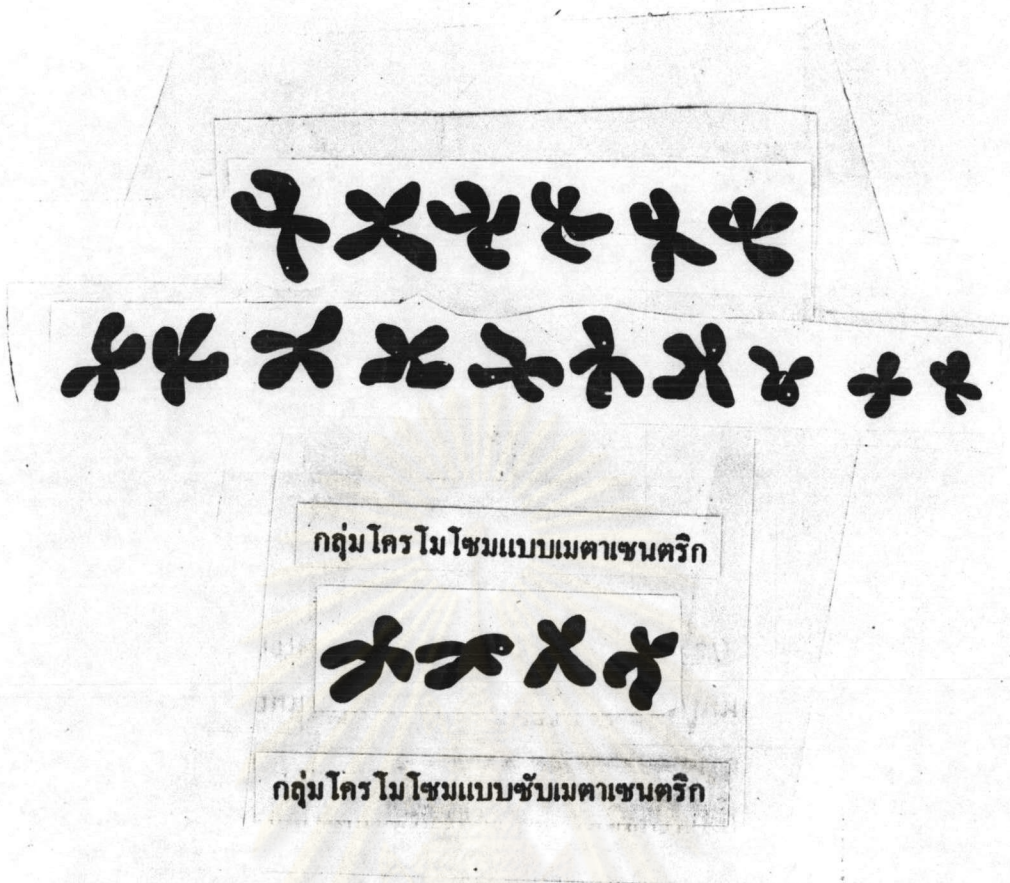 กลุ่มโครโมโซมแบบเมตาเซนตริก
กลุ่มโครโมโซมแบบซับเมตาเซนตริก